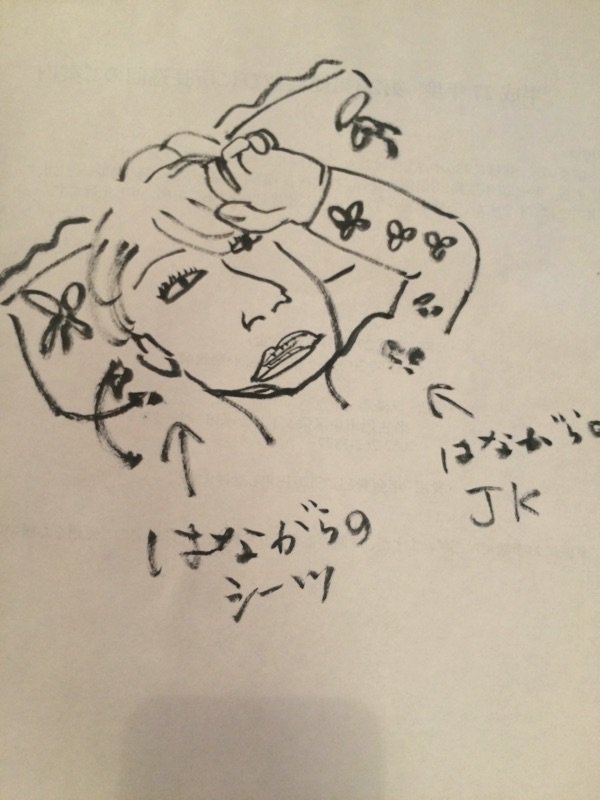 はながらの
JK
はながらの
シーツ